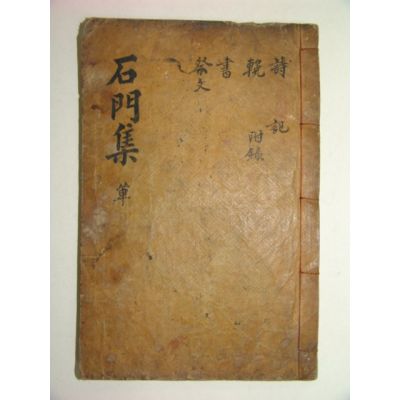 詩 記
輓 附錄
書
祭文
石門集 單